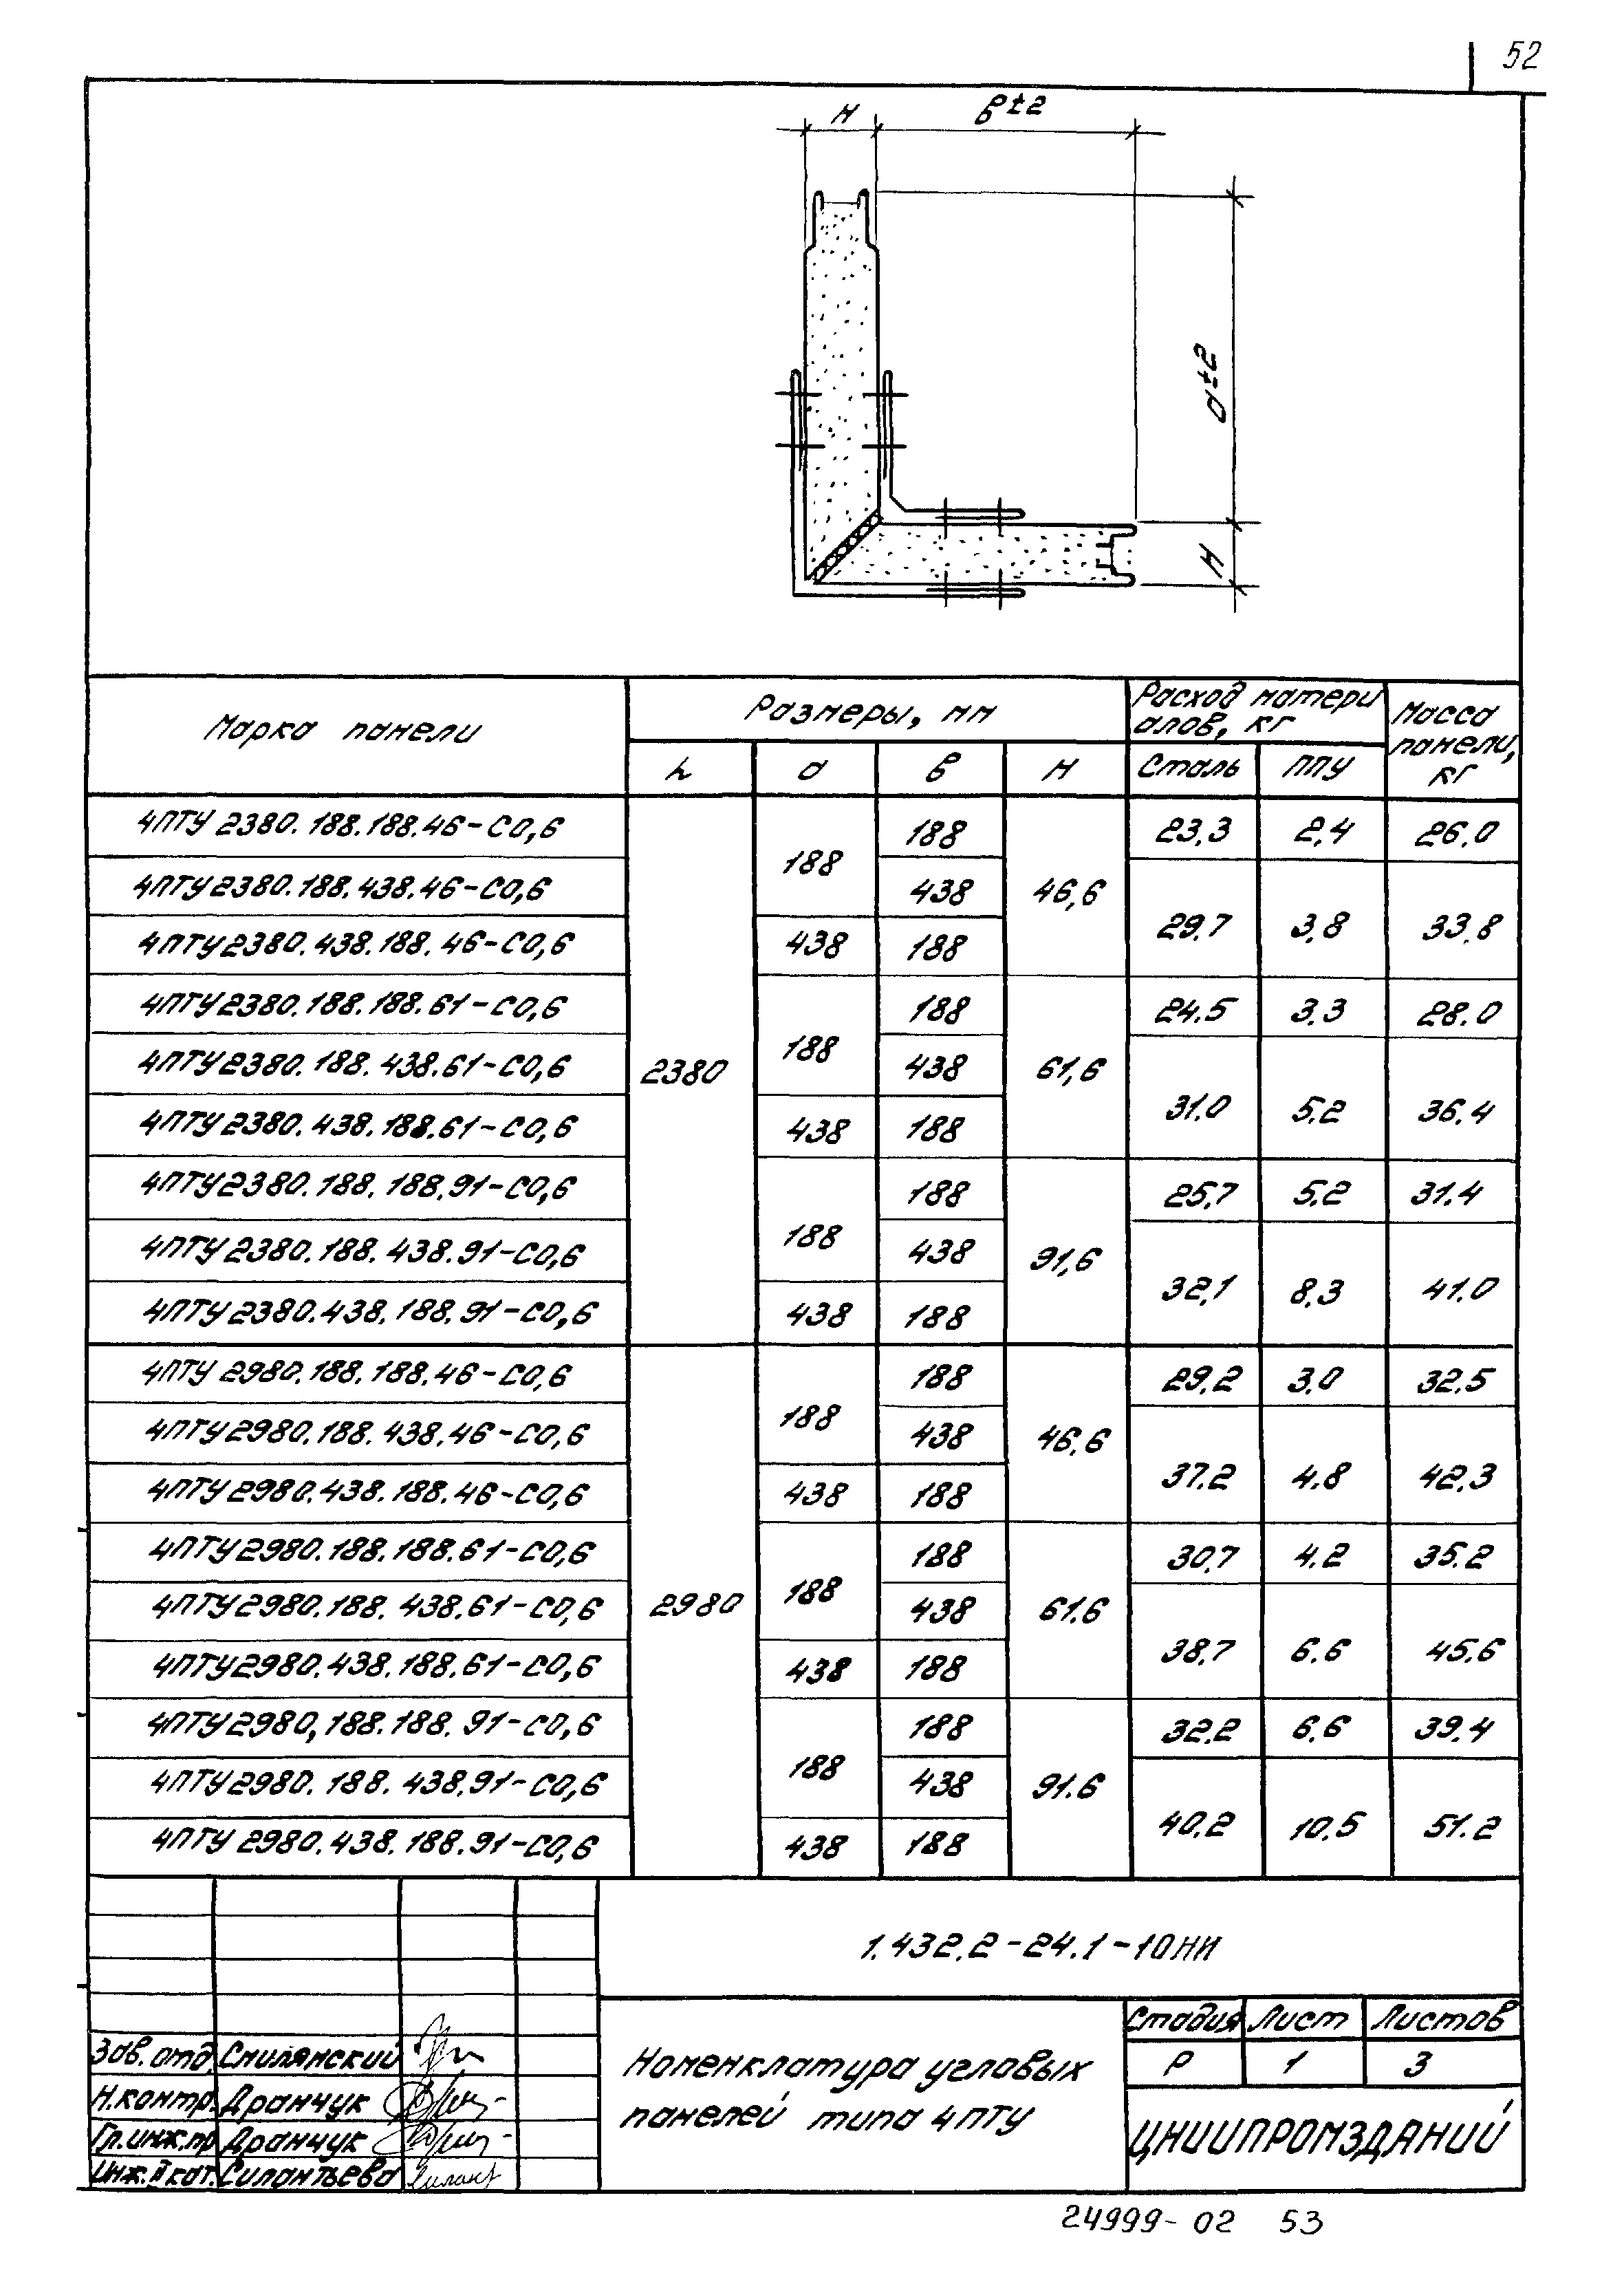 52
Н
в±2
а±2
Н
Марка панели
Размеры, мм
Расход матери
алов, кг
Масса
панели,
кг
h
а
в
Н
Сталь
ППУ
4ПТУ 2380.188.188.46-С0,6
188
188
46,6
23,3
2,4
26.0
4ПТУ2380.188.438.46-С0,6
438
29.7
3,8
33.8
4ПТУ2380.438.188.46-С0,6
438
188
4ПТУ2380.188.188.61-С0,6
2380
188
188
61,6
24.5
3.3
28.0
4ПТУ2380.188.438.61-С0,6
438
31.0
5.2
36.4
4ПТУ2380.438.188.61-С0,6
438
188
4ПТУ2380.188.188.91-С0,6
188
188
91,6
25,7
5,2
31.4
4ПТУ2380.188.438.91-С0,6
438
32,1
8,3
41.0
4ПТУ2380.438.188.91-С0,6
438
188
4ПТУ 2980.188.188.46-С0,6
188
188
46,6
29,2
3,0
32.5
4ПТУ2980.188.438.46-С0,6
438
37.2
4.8
42,3
4ПТУ2980.438.188.46-С0,6
438
188
4ПТУ2980.188.188.61-С0,6
2980
188
188
61.6
30,7
4.2
35.2
4ПТУ2980.188.438.61-С0,6
438
38,7
6.6
45.6
4ПТУ2980.438.188.61-С0,6
438
188
4ПТУ2980,188.188.91-С0,6
188
188
91.6
32.2
6,6
39.4
4ПТУ2980.188.438.91-С0,6
438
40.2
10,5
51.2
4ПТУ 2980.438.188.91-С0,6
438
188
1.432.2-24.1-10НИ
Зав. отд. Смилянский
Н.контр. Дранчук
Гл.инж.пр Дранчук
Инж. II кат. Силантьева
Номенклатура угловых
панелей типа 4ПТУ
Стадия Лист Листов
Р 1 3
ЦНИИПРОМЗДАНИЙ
24999-02 53